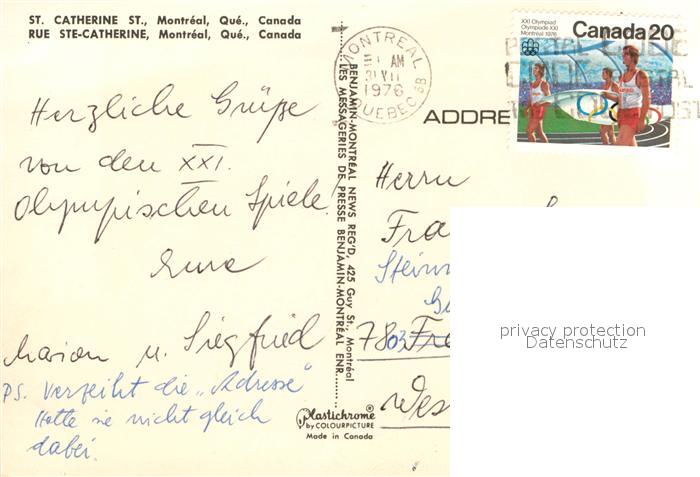 ST. CATHERINE ST., Montréal, Qué., Canada
RUE STE-CATHERINE, Montréal, Qué., Canada
Herzliche Grüße
von den XXI.
Olympischen Spiele!
Eure
Marion u. Siegfried
PS. Verzeiht die „Adresse"
Hatte sie nicht gleich
dabei.
BENJAMIN-MONTRÉAL NEWS REG'D, 425 Guy St., Montréal
LES MESSAGERIES DE PRESSE BENJAMIN-MONTRÉAL ENR.
Plastichrome®
by COLOURPICTURE
Made in Canada
MONTREAL
AM
31 VII
1976
QUEBEC
XXI Olympiad
Olympiade XXI
Montréal 1976
Canada 20
ADDRE
Herrn
Fra
Stein
7803 Fre
Wes
privacy protection
Datenschutz